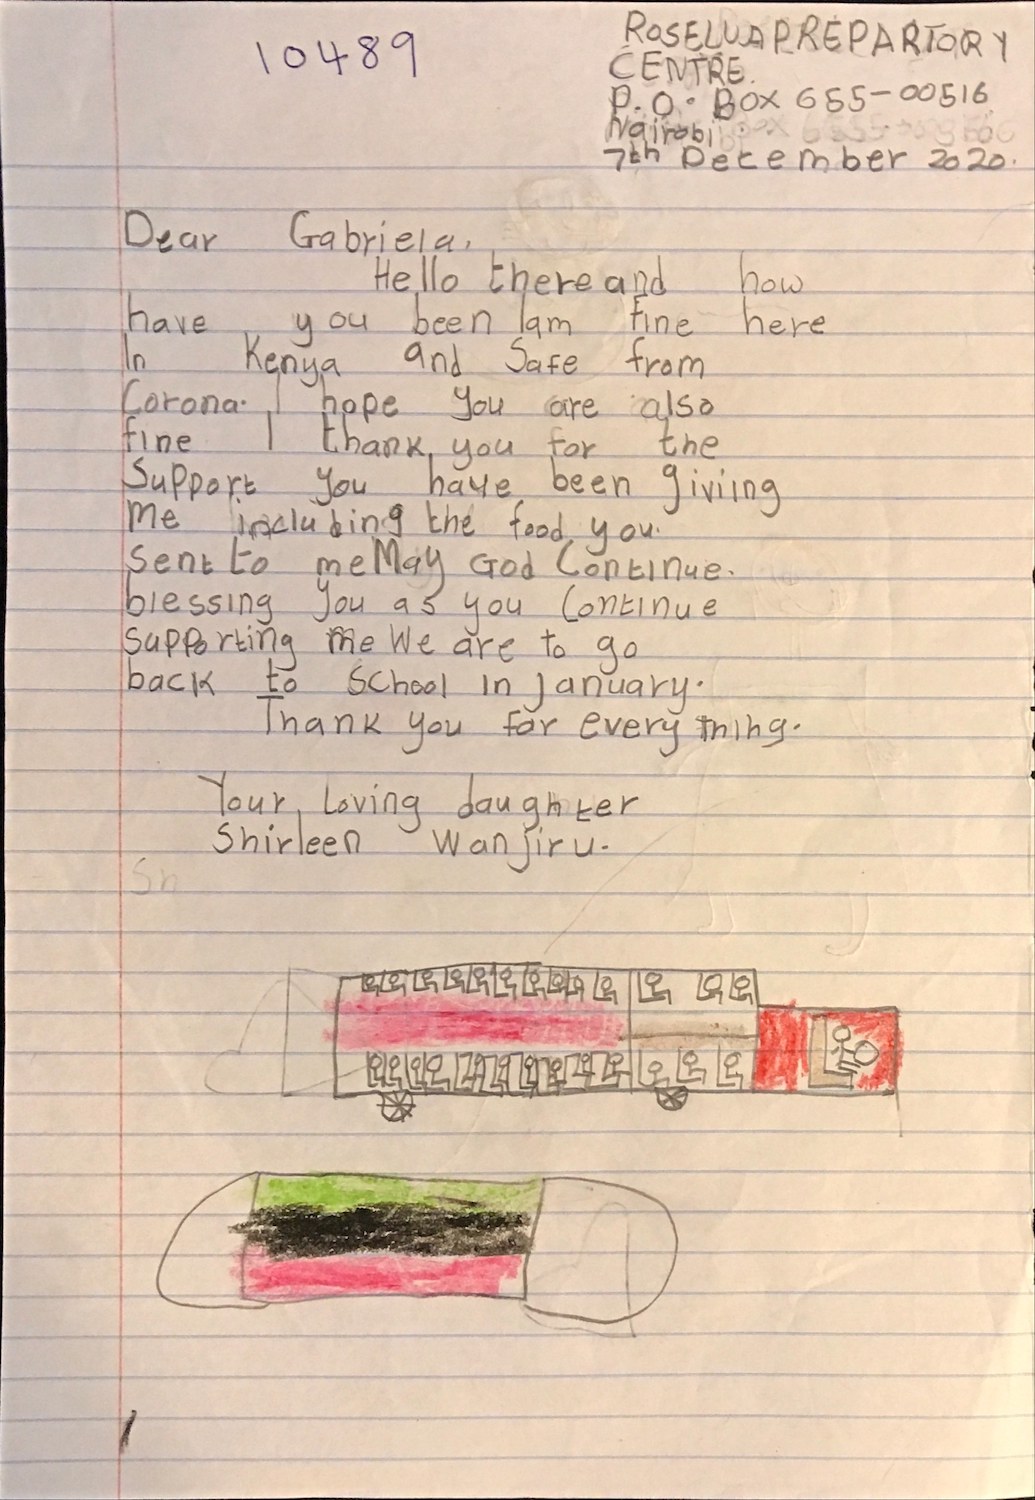 10489
ROSELUA PREPARTORY
CENTRE.
P.O. BOX 655-00516
Nairobi
7th December 2020.
Dear Gabriela,
Hello there and how
have you been Iam fine here
In Kenya and Safe from
Corona. I hope you are also
fine I thank you for the
Support you have been giviing
me including the food you
sent to me May God Continue.
blessing you as you Continue
supporting me We are to go
back to School in January.
Thank you for every thing.
Your Loving daughter
Shirleen Wanjiru.
Sh